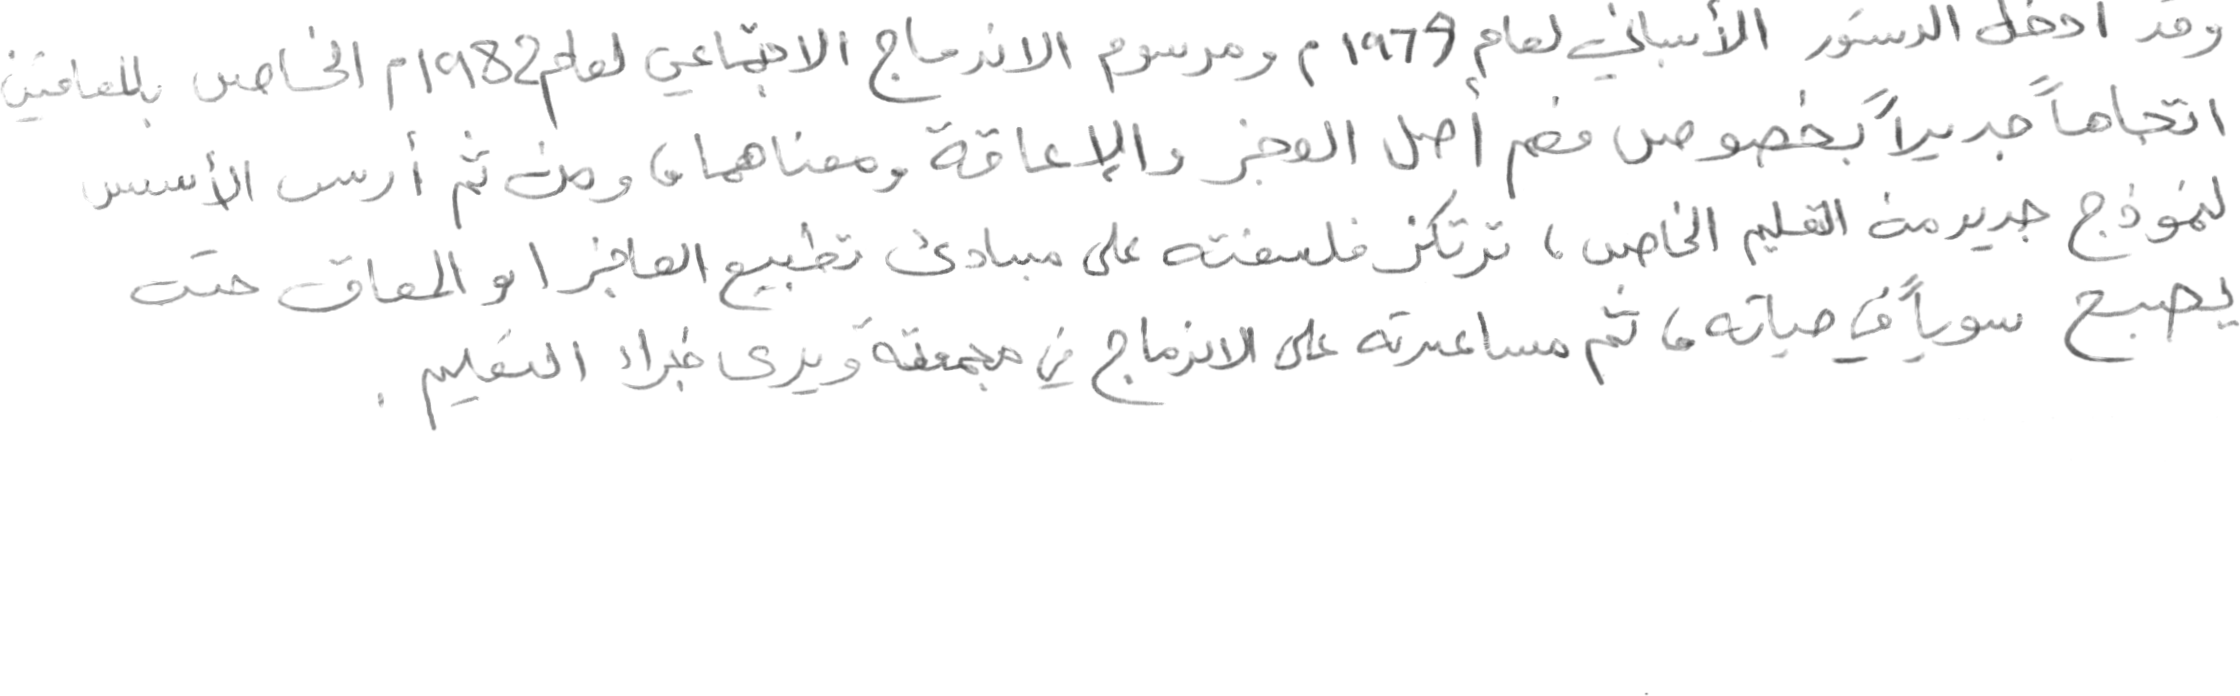 وقد ادخل الدستور الأسباني لعام ١٩٧9م ومرسوم الاندماج الاجتماعي لعام ١٩82م الخاص بالمعاقين
اتجاهاً جديداً بخصوص فهم أصل العجز والإعاقة ومعناهما، ومن ثم أرست الأسس
لنموذج جديد من التعليم الخاص، ترتكز فلسفته على مبادئ تطبيع العاجز او المعاق حتى
يصبح سوياً في حياته، ثم مساعدته على الاندماج في مجمتعه ويرى خبراء التعليم.